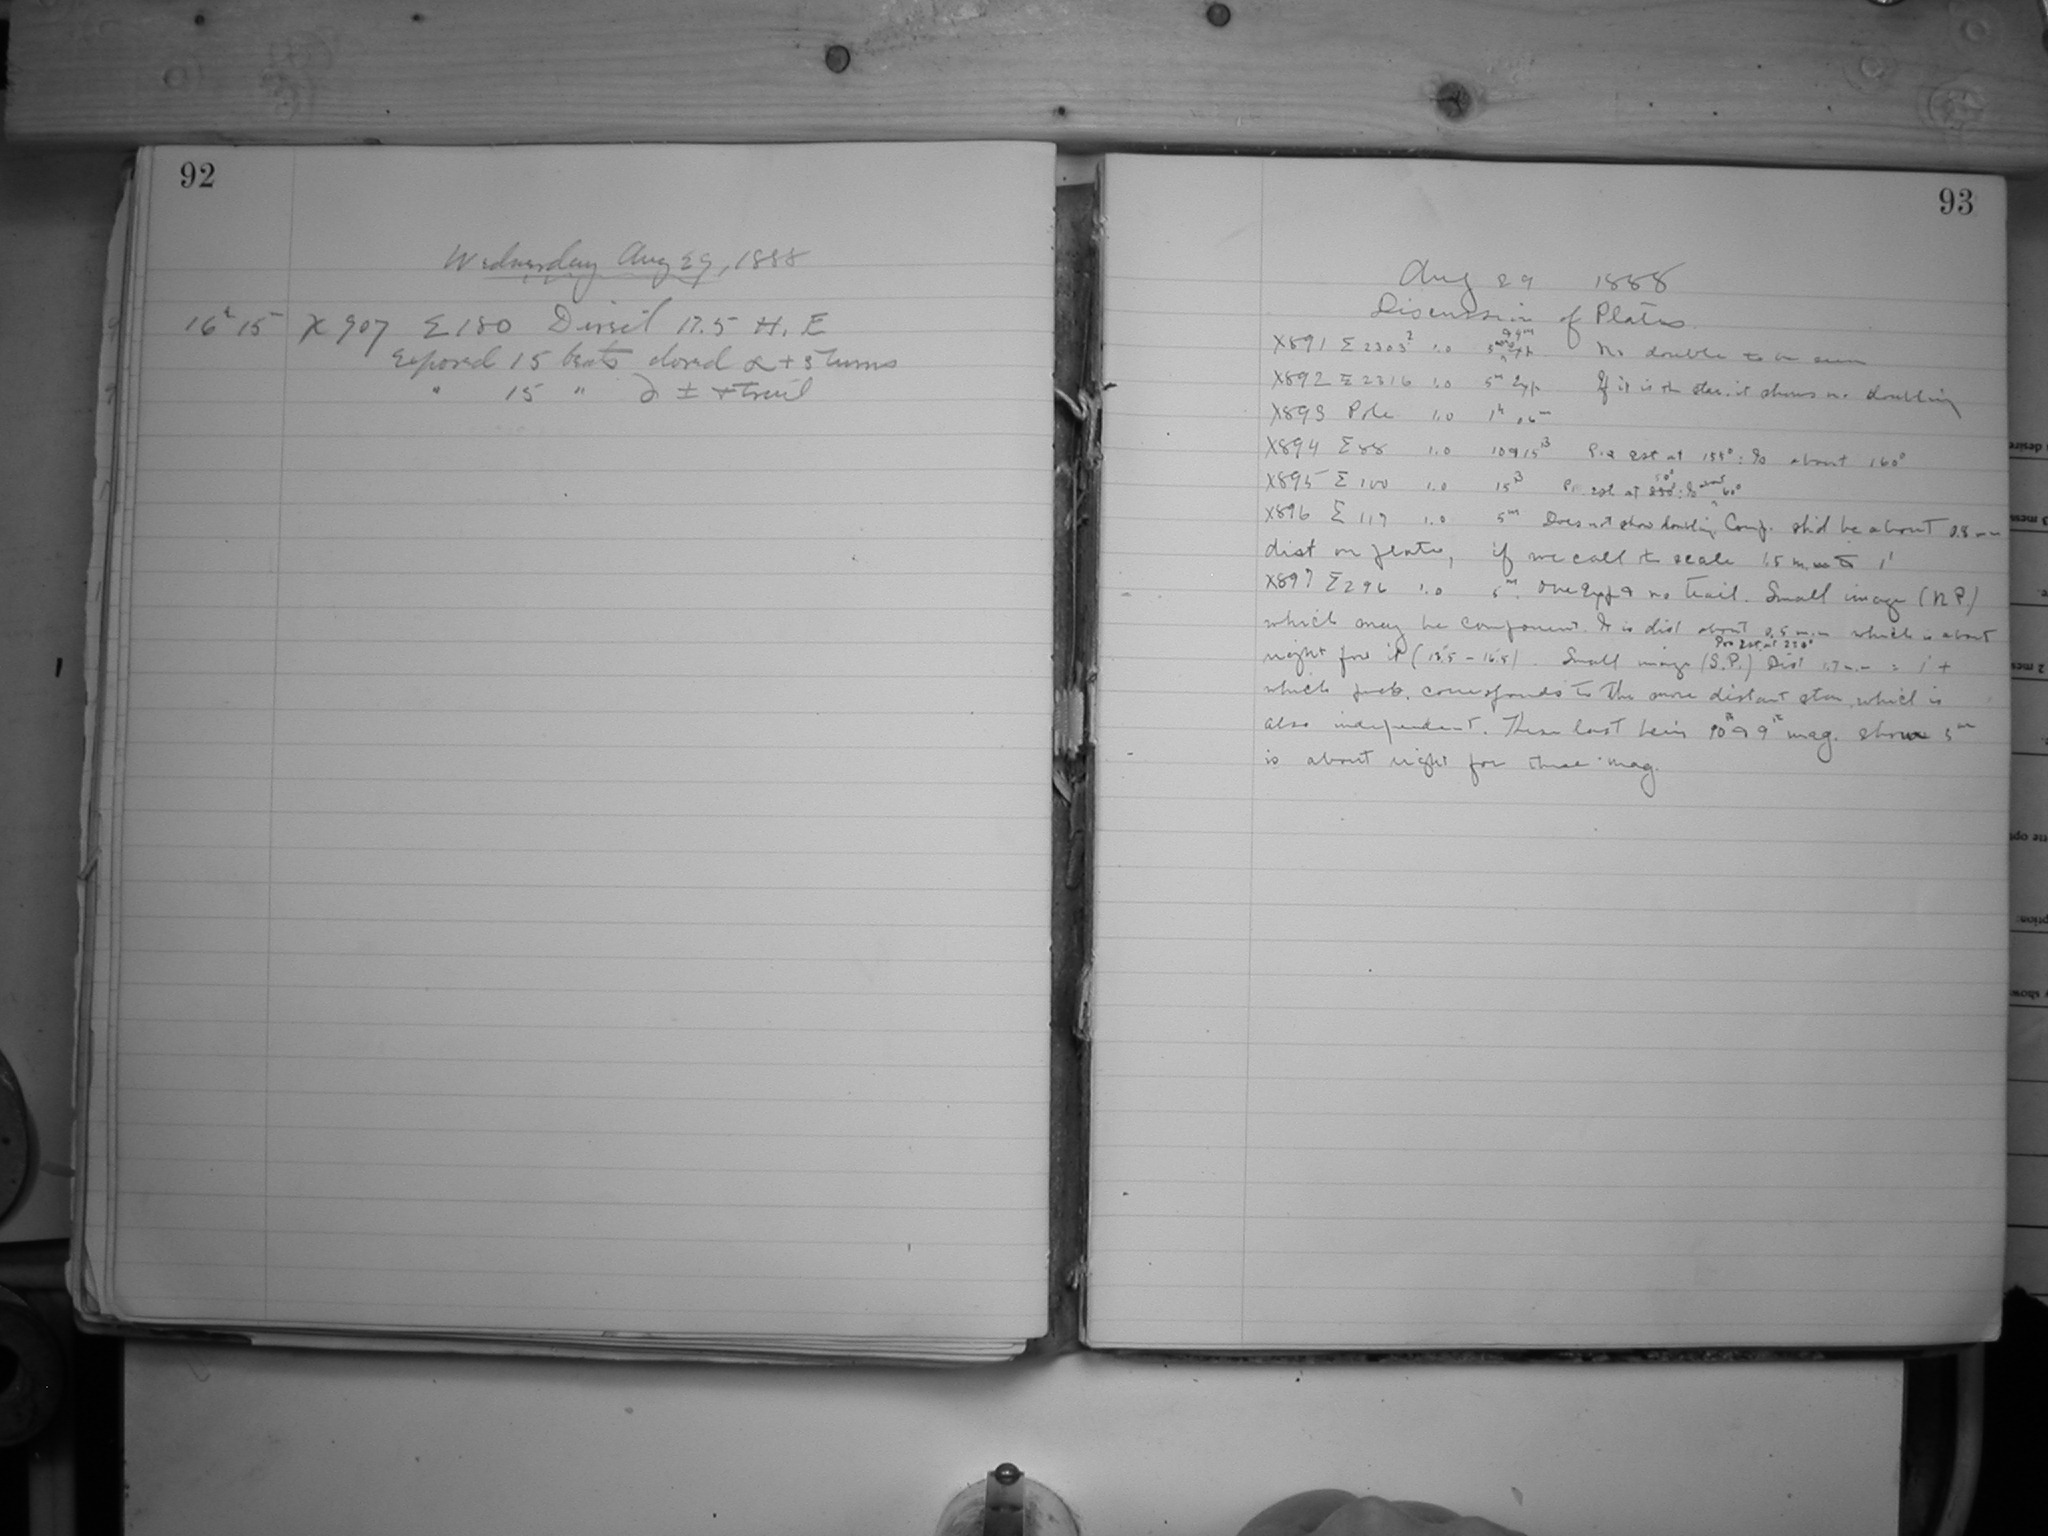 92
Wednesday Aug 29, 1888
16 15 X 907 Σ180 Direct 17.5 H. E
Exposed 15 beats closed α + 3 turns
" 15 " trail
93
Aug 29 1888
Discussion of Plates
X891 Σ 2303² 1.0 5ᵐ No double to be seen
X892 Σ 2316 1.0 5ᵐ Exp. If it is the star, it shows no doubling
X893 Pole 1.0 1ʰ
X894 Σ 88 1.0 10 & 15ᴮ P.a est at 155°: % about 160°
X895 Σ 100 1.0 15ᴮ P. est at 50° : % about 60°
X896 Σ 117 1.0 5ᵐ Does not show doubling Comp. sh'd be about 0.8 mm
dist on plate, if we call the scale 1.5 m.m to 1'
X897 Σ 296 1.0 5ᵐ. One Exp & no trail. Small image (N P.)
which may be component. It is dist about 0.5 m.m which is about
right for it (15".5 - 16".5). Small image (S.P.) Pos est. at 220° Dist 1.7 m.m = 1' +
which prob. corresponds to the more distant star, which is
also independent. These last being 10 & 9 mag. show 5ᵐ
is about right for these mag.